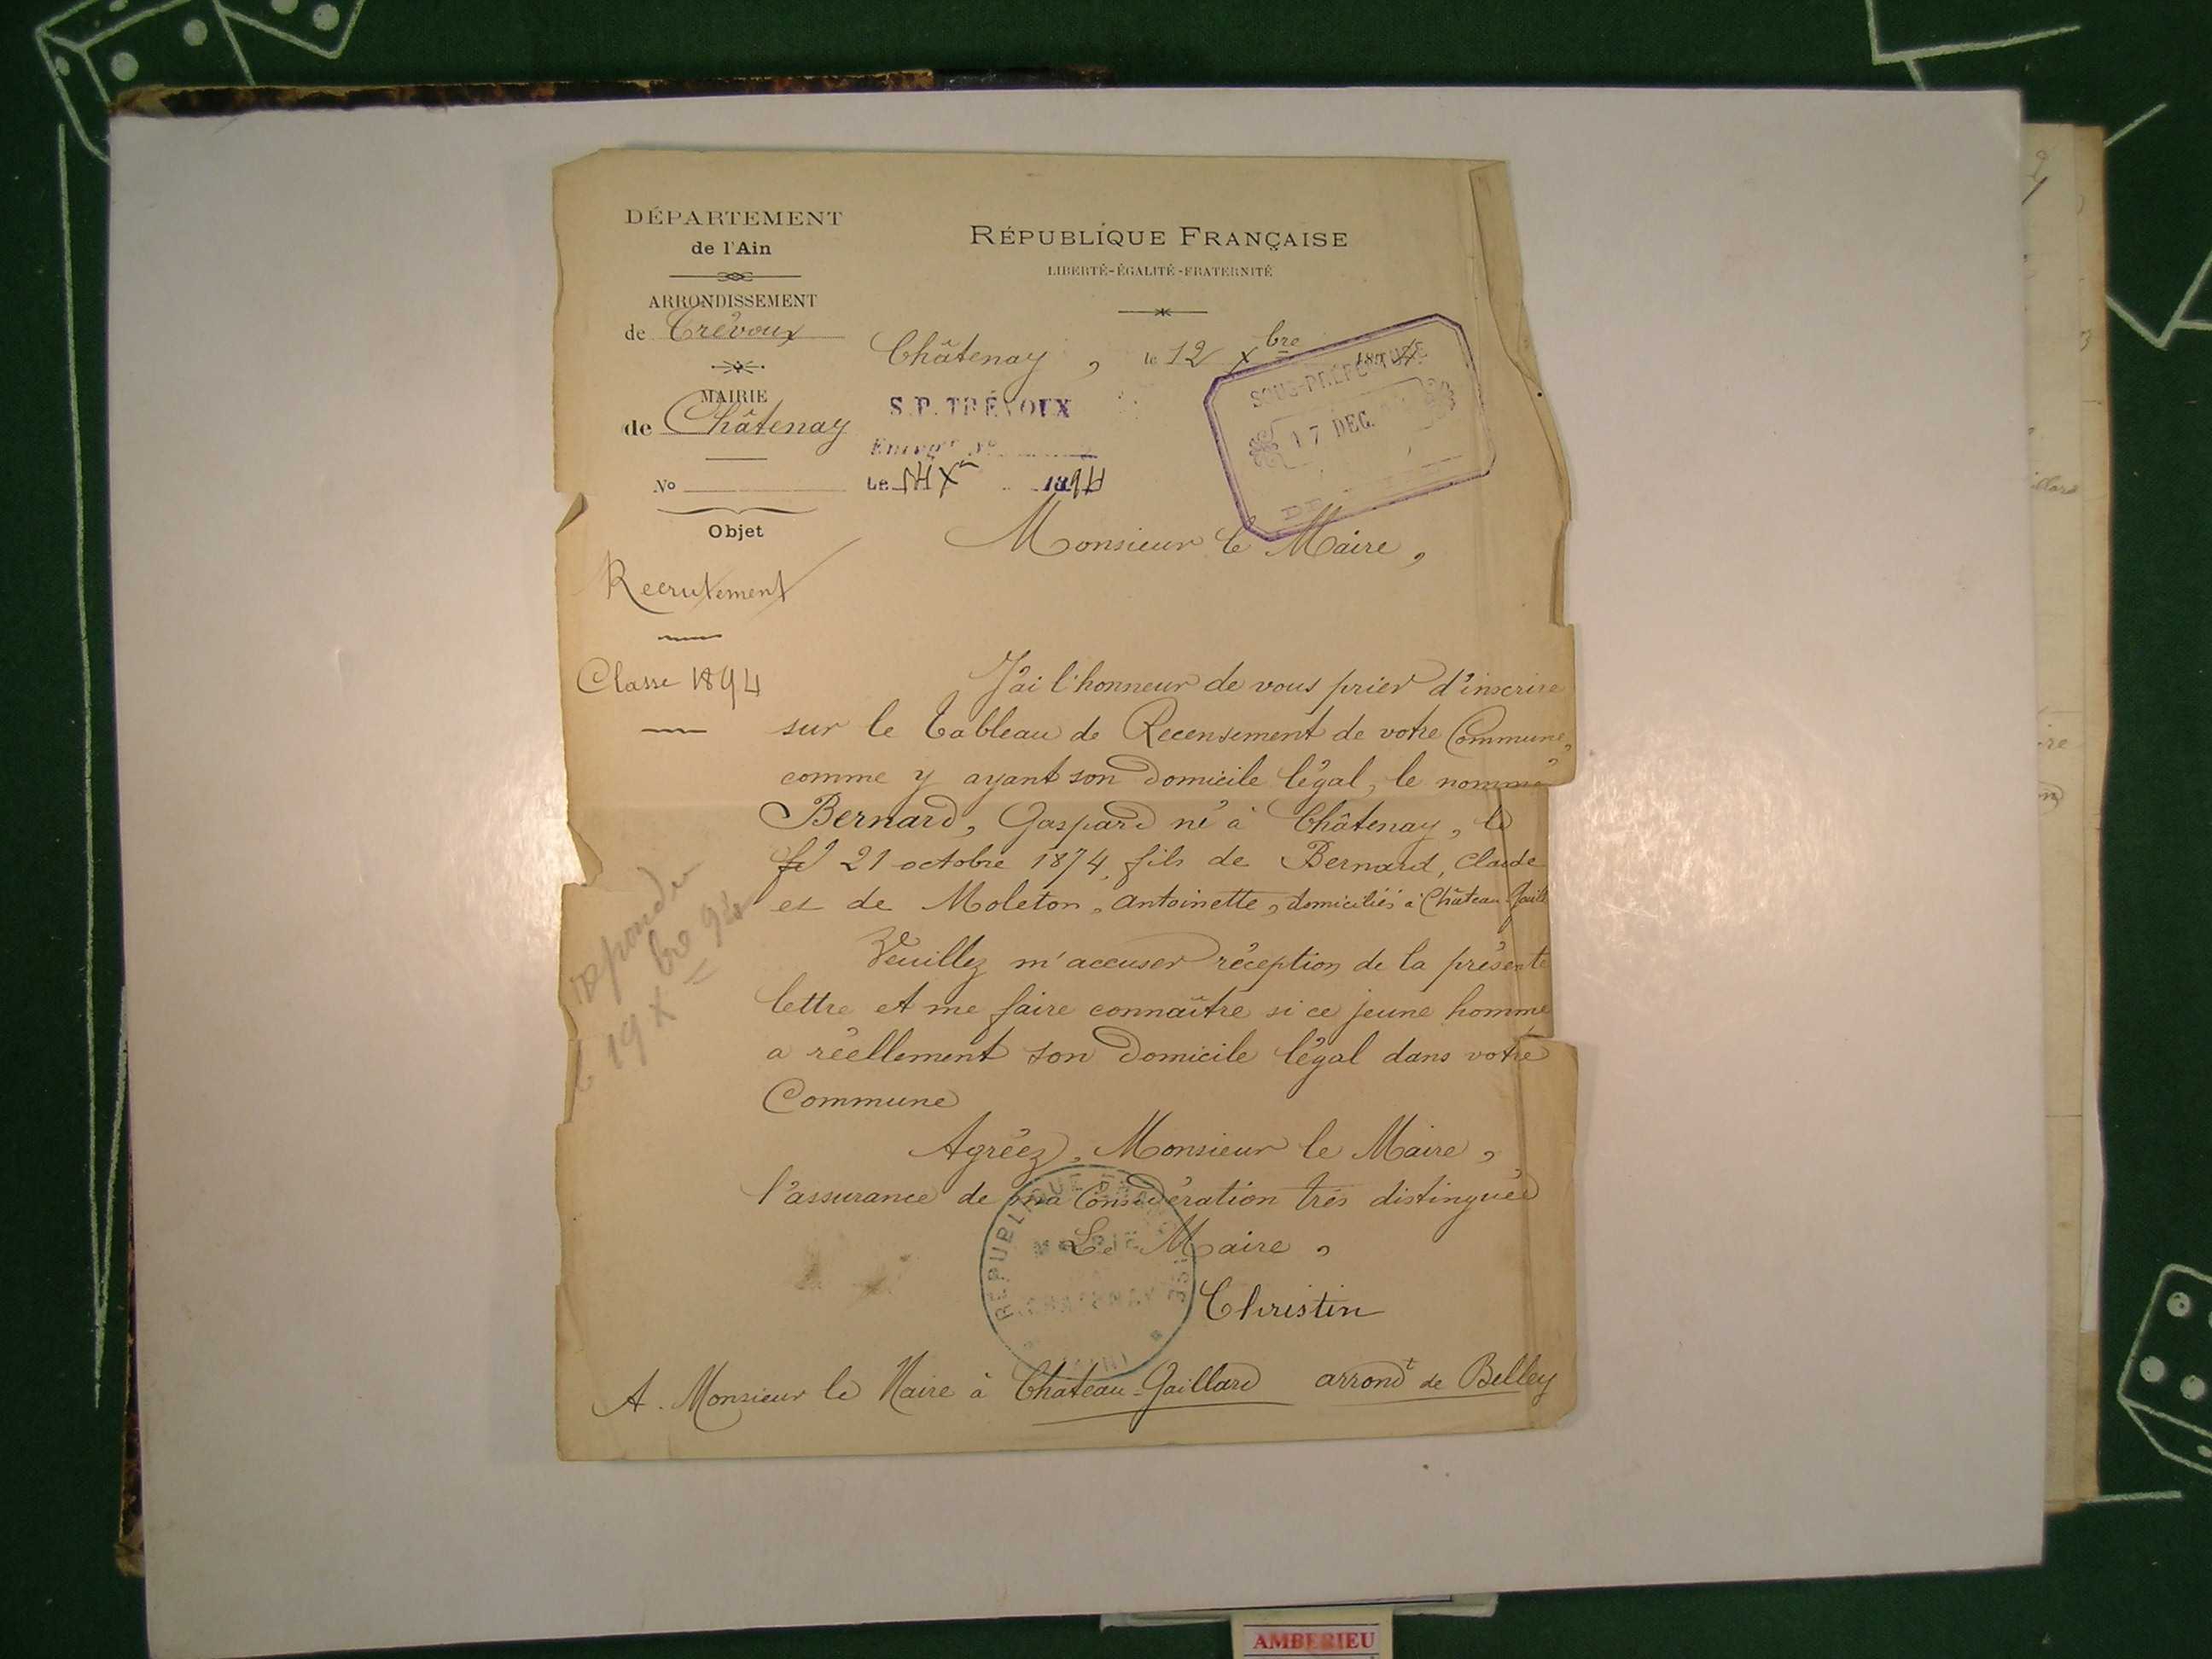 DÉPARTEMENT
de l'Ain
ARRONDISSEMENT
de Trévoux
MAIRIE
de Châtenay
No
Objet
Recrutement
Classe 1894
RÉPUBLIQUE FRANÇAISE
LIBERTÉ-ÉGALITÉ-FRATERNITÉ
Châtenay, le 12 Xbre 1894
S.P. TRÉVOUX
Enregt No
Le 14 Xre 1894
SOUS-PRÉFECTURE
17 DEC.
DE
Monsieur le Maire,
J'ai l'honneur de vous prier d'inscrire
sur le Tableau de Recensement de votre Commune,
comme y ayant son Domicile légal, le nommé
Bernard, Gaspard né à Châtenay, le
21 octobre 1874, fils de Bernard, Claude
et de Moleton, Antoinette, domiciliés à Château-Gaill
Veuillez m'accuser réception de la présente
lettre et me faire connaître si ce jeune homme
a réellement son Domicile légal dans votre
Commune
Agréez, Monsieur le Maire,
l'assurance de ma Considération très distinguée
Le Maire,
Christin
RÉPUBLIQUE FRANÇAISE
MAIRIE
CHATENAY
(AIN)
A Monsieur le Maire à Chateau-Gaillard arrondt de Belley
répondu
le 19 Xbre 94
AMBERIEU